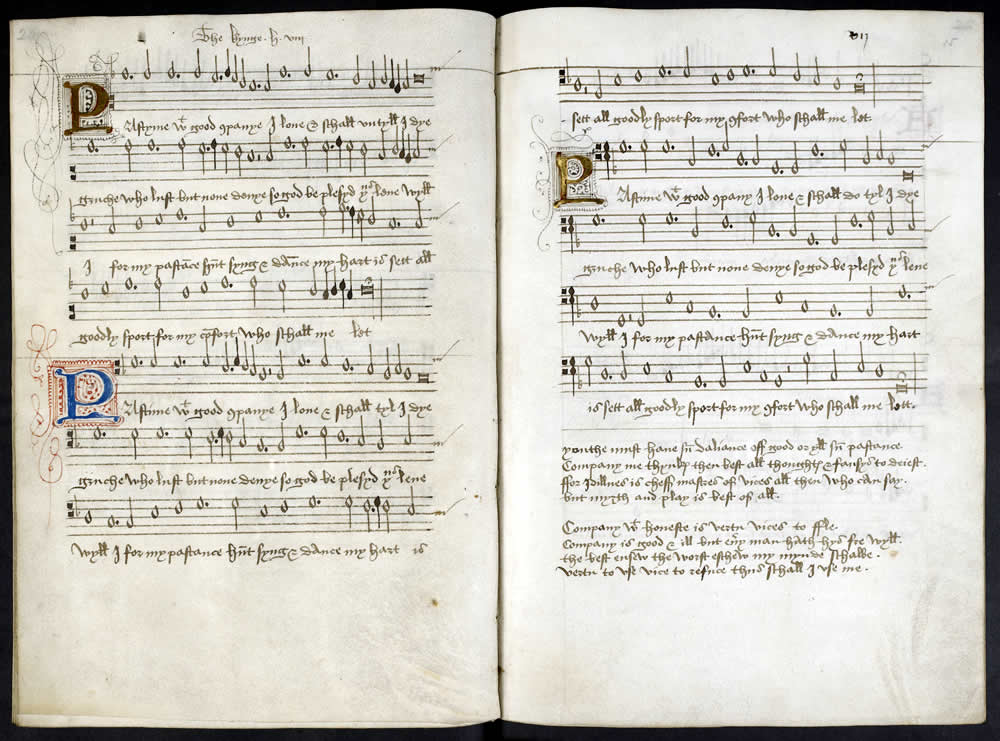 The kynge. h. viii
PAstyme wt good 9panye I loue & schall vntyll I dye
gruche who lust but none denye so god be plesyd yus loue wyll
I for my pastāce hūt syng & dāunce my hart is sett all
goodly sport for my cōfort who schall me let
PAstime wt good 9panye I loue & schall tyl I dye
gruche who lust but none denye so god be plesyd yus leue
wyll I for my pastance hūt syng & dance my hart is
sett all goodly sport for my 9fort who schall me let
PAstime wt good 9pany I loue & schall do tyl I dye
gruche who lust but none denye so god be plesyd yus leue
wyll I for my pastance hūt syng & dance my hart
is sett all goodly sport for my 9fort who schall me lett.
youthe must haue sū daliance off good or yll sū pastance.
Company me thynkys then best all thoughtes & fansys to deiest.
ffor Idillnes is cheff mastres of vices all then who can say.
but myrth and play is best of all.
Company wt honeste is vertu vices to ffle.
Company is good & ill but eu'y man hath hys fre wyll.
the best ensew the worst eschew my mynde schalbe.
vertu to vse vice to refuce thus schall I vse me.